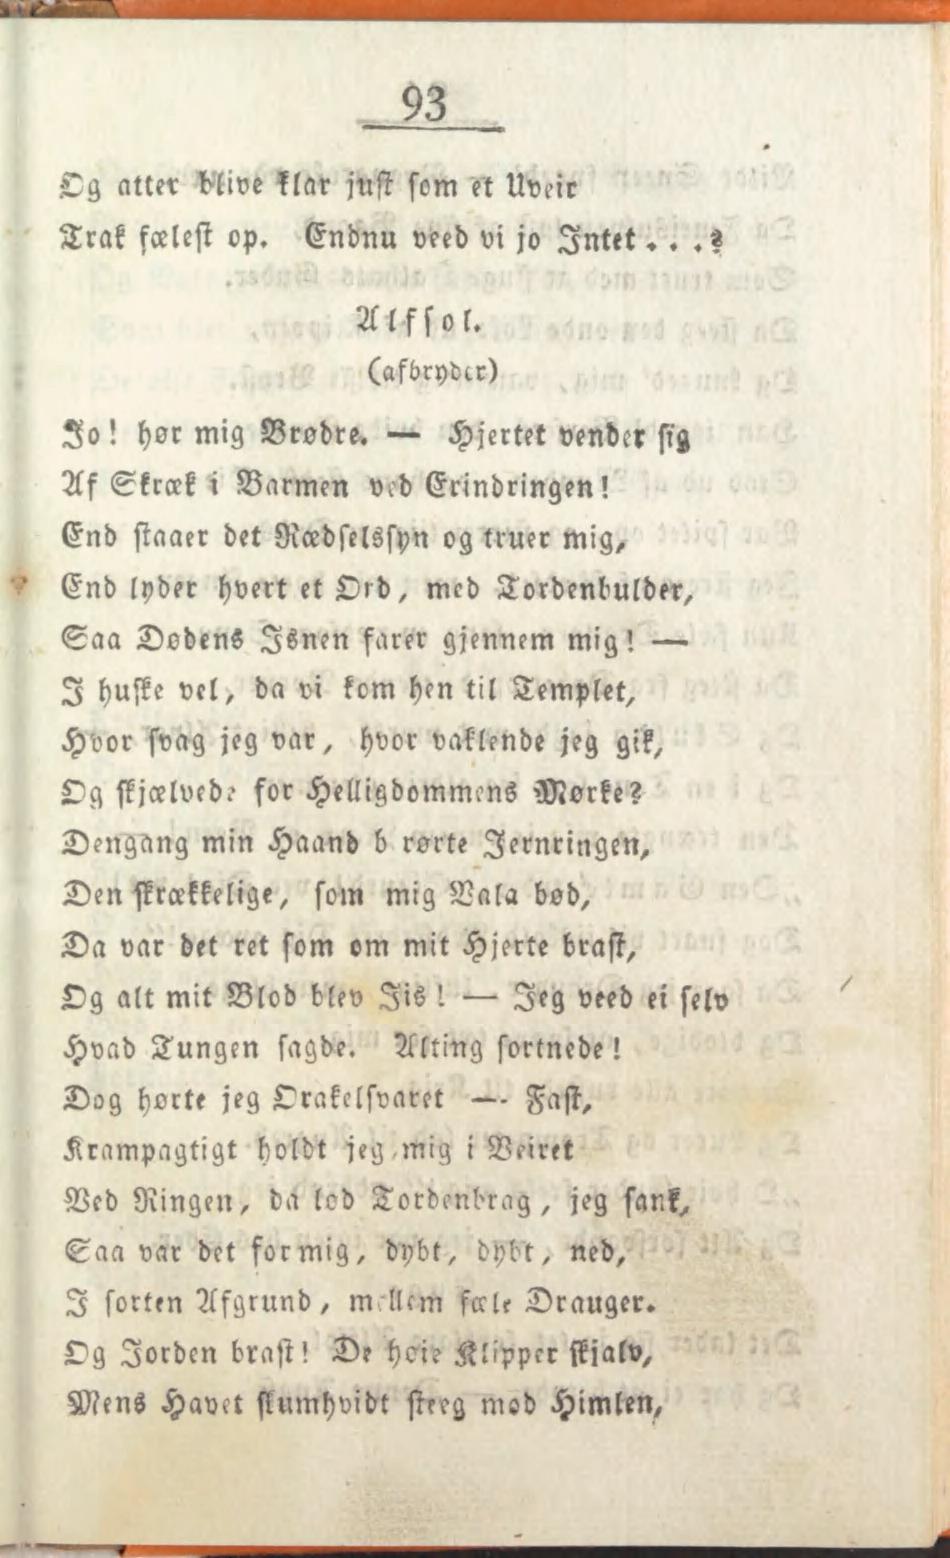 93
Og atter blive klar just som et Uveir
Trak fælest op. Endnu veed vi jo Intet . . . ?
Alfsol.
(afbryder)
Jo! hør mig Brødre. — Hjertet vender sig
Af Skræk i Barmen ved Erindringen!
End staaer det Rædselssyn og truer mig,
End lyder hvert et Ord, med Tordenbulder,
Saa Dødens Isnen farer gjennem mig! —
I huske vel, da vi kom hen til Templet,
Hvor svag jeg var, hvor vaklende jeg gik,
Og skjælvede for Helligdommens Mørke?
Dengang min Haand b rørte Jernringen,
Den skrækkelige, som mig Vala bød,
Da var det ret som om mit Hjerte brast,
Og alt mit Blod blev Iis! — Jeg veed ei selv
Hvad Tungen sagde. Alting sortnede!
Dog hørte jeg Orakelsvaret —- Fast,
Krampagtigt holdt jeg mig i Veiret
Ved Ringen, da lød Tordenbrag, jeg sank,
Saa var det for mig, dybt, dybt, ned,
I sorten Afgrund, mellem fæle Drauger.
Og Jorden brast! De høie Klipper skjalv,
Mens Havet skumhvidt steeg mod Himlen,